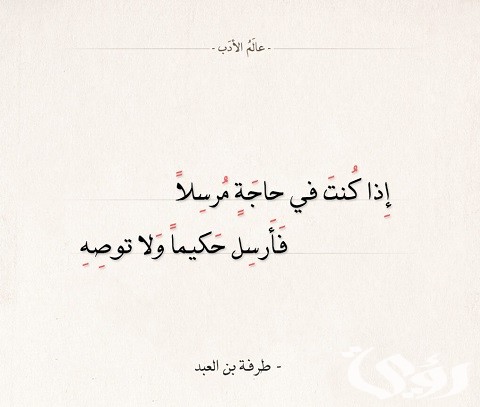 - عالَمُ الأدَب -
إِذا كُنتَ في حاجَةٍ مُرسِلاً
فَأَرسِل حَكيماً وَلا توصِهِ
- طرفة بن العبد
رؤية